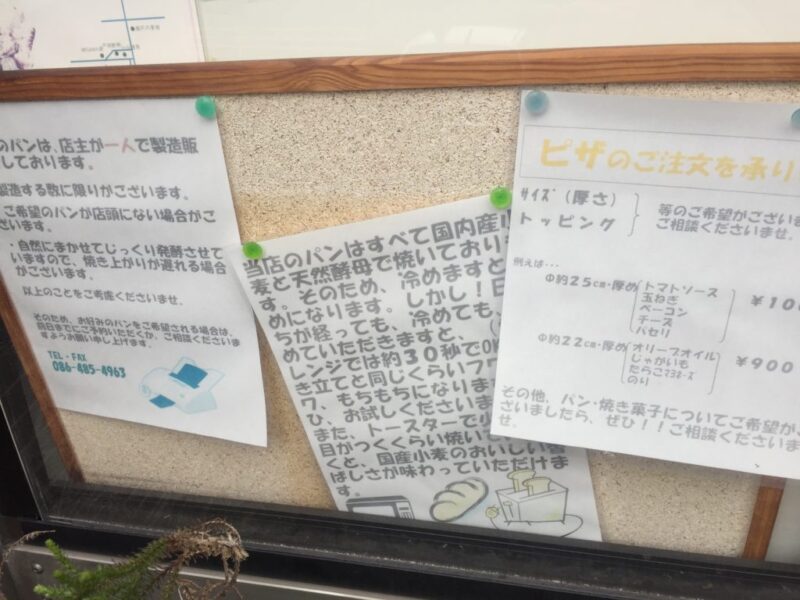 のパンは、店主が一人で製造販
しております。
製造する数に限りがございます。
ご希望のパンが店頭にない場合がござ
います。
・自然にまかせてじっくり発酵させて
いますので、焼き上がりが遅れる場合
がございます。
以上のことをご考慮くださいませ。
そのため、お好みのパンをご希望される場合は、
前日までにご予約いただくか、ご相談くださいま
すようお願い申し上げます。
TEL・FAX
086-485-4963
当店のパンはすべて国内産小
麦と天然酵母で焼いており
す。そのため、冷めますと
めになります。しかし！日
ちが経っても、冷めても、
めていただきますと、（
レンジでは約３０秒でOK
き立てと同じくらいフワ
ワ、もちもちになりま
ひ、お試しくださいま
また、トースターで
目がつくくらい焼い
くと、国産小麦のおいしい香
ばしさが味わっていただけま
す。
ピザのご注文を承り
サイズ（厚さ）
トッピング
等のご希望がございま
ご相談くださいませ。
例えば…
Φ約２５㎝・厚め
トマトソース
玉ねぎ
ベーコン
チーズ
パセリ
￥１０
Φ約２２㎝・厚め
オリーブオイル
じゃがいも
たらこマヨネーズ
のり
￥９００
その他、パン・焼き菓子についてご希望がご
ざいましたら、ぜひ！！ご相談くださいま
せ。